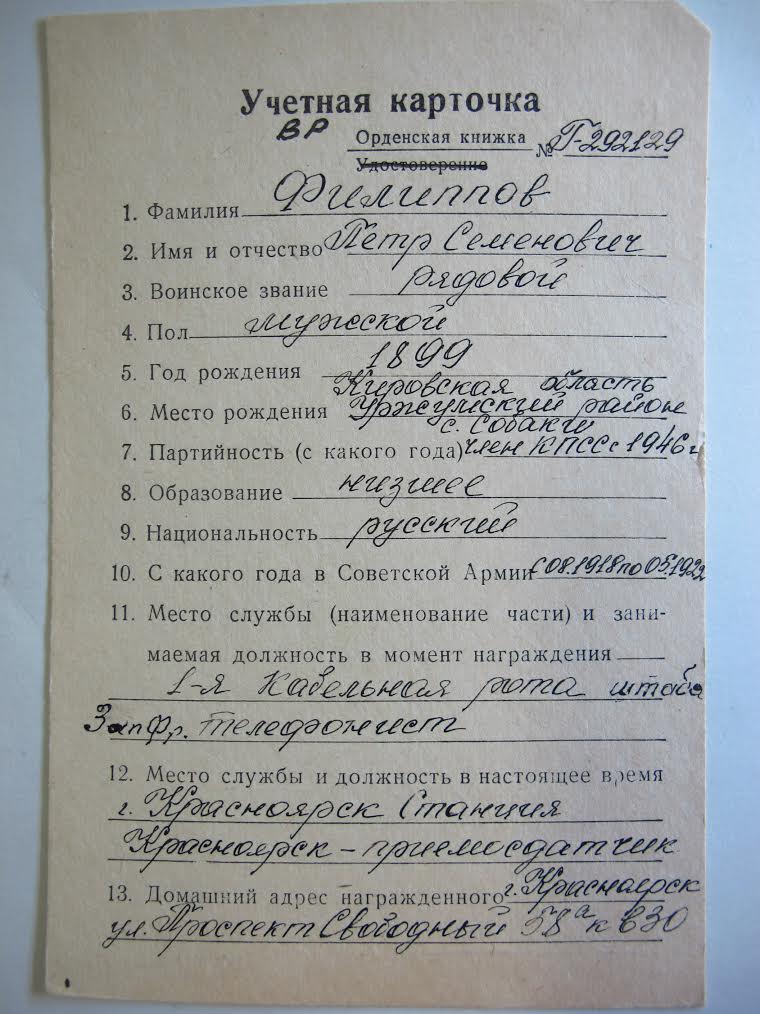 Учетная карточка
ВР Орденская книжка № Г-292129
Удостоверение
1. Фамилия Филиппов
2. Имя и отчество Петр Семенович
3. Воинское звание рядовой
4. Пол мужской
5. Год рождения 1899
Кировская область
6. Место рождения Уржумский район
с. Собаки
7. Партийность (с какого года) член КПСС с 1946 г
8. Образование низшее
9. Национальность русский
10. С какого года в Советской Армии с 08.1918 по 05.1922
11. Место службы (наименование части) и зани-
маемая должность в момент награждения
1-я Кабельная рота штаба
Зап Фр. телефонист
12. Место службы и должность в настоящее время
г. Красноярск Станция
Красноярск - приемосдатчик
13. Домашний адрес награжденного г. Красноярск
ул. Проспект Свободный 58а к в 30